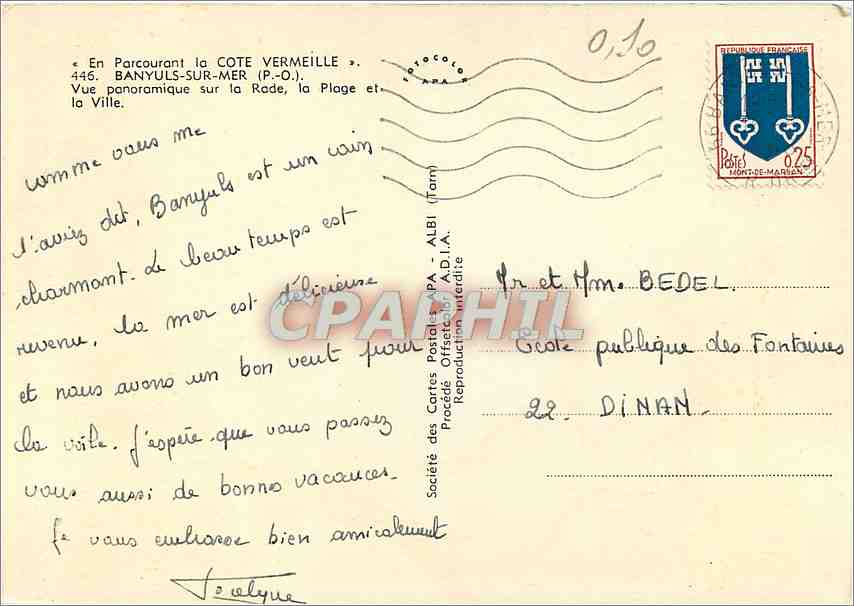 « En Parcourant la COTE VERMEILLE ».
446. BANYULS-SUR-MER (P.-O.).
Vue panoramique sur la Rade, la Plage et
la Ville.
FOTOCOLOR
APA
0,10
REPUBLIQUE FRANÇAISE
POSTES 0,25
MONT-DE-MARSAN
comme vous me
l'aviez dit, Banyuls est un coin
charmant. Le beau temps est
revenu, la mer est délicieuse
et nous avons un bon vent pour
la voile. J'espère que vous passez
vous aussi de bonnes vacances.
Je vous embrasse bien amicalement
Jocelyne
Société des Cartes Postales APA - ALBI (Tarn)
Procédé Offsetcolor A.D.I.A.
Reproduction interdite
CPAPHIL
Mr et Mme BEDEL.
Ecole publique des Fontaines
22. DINAN.